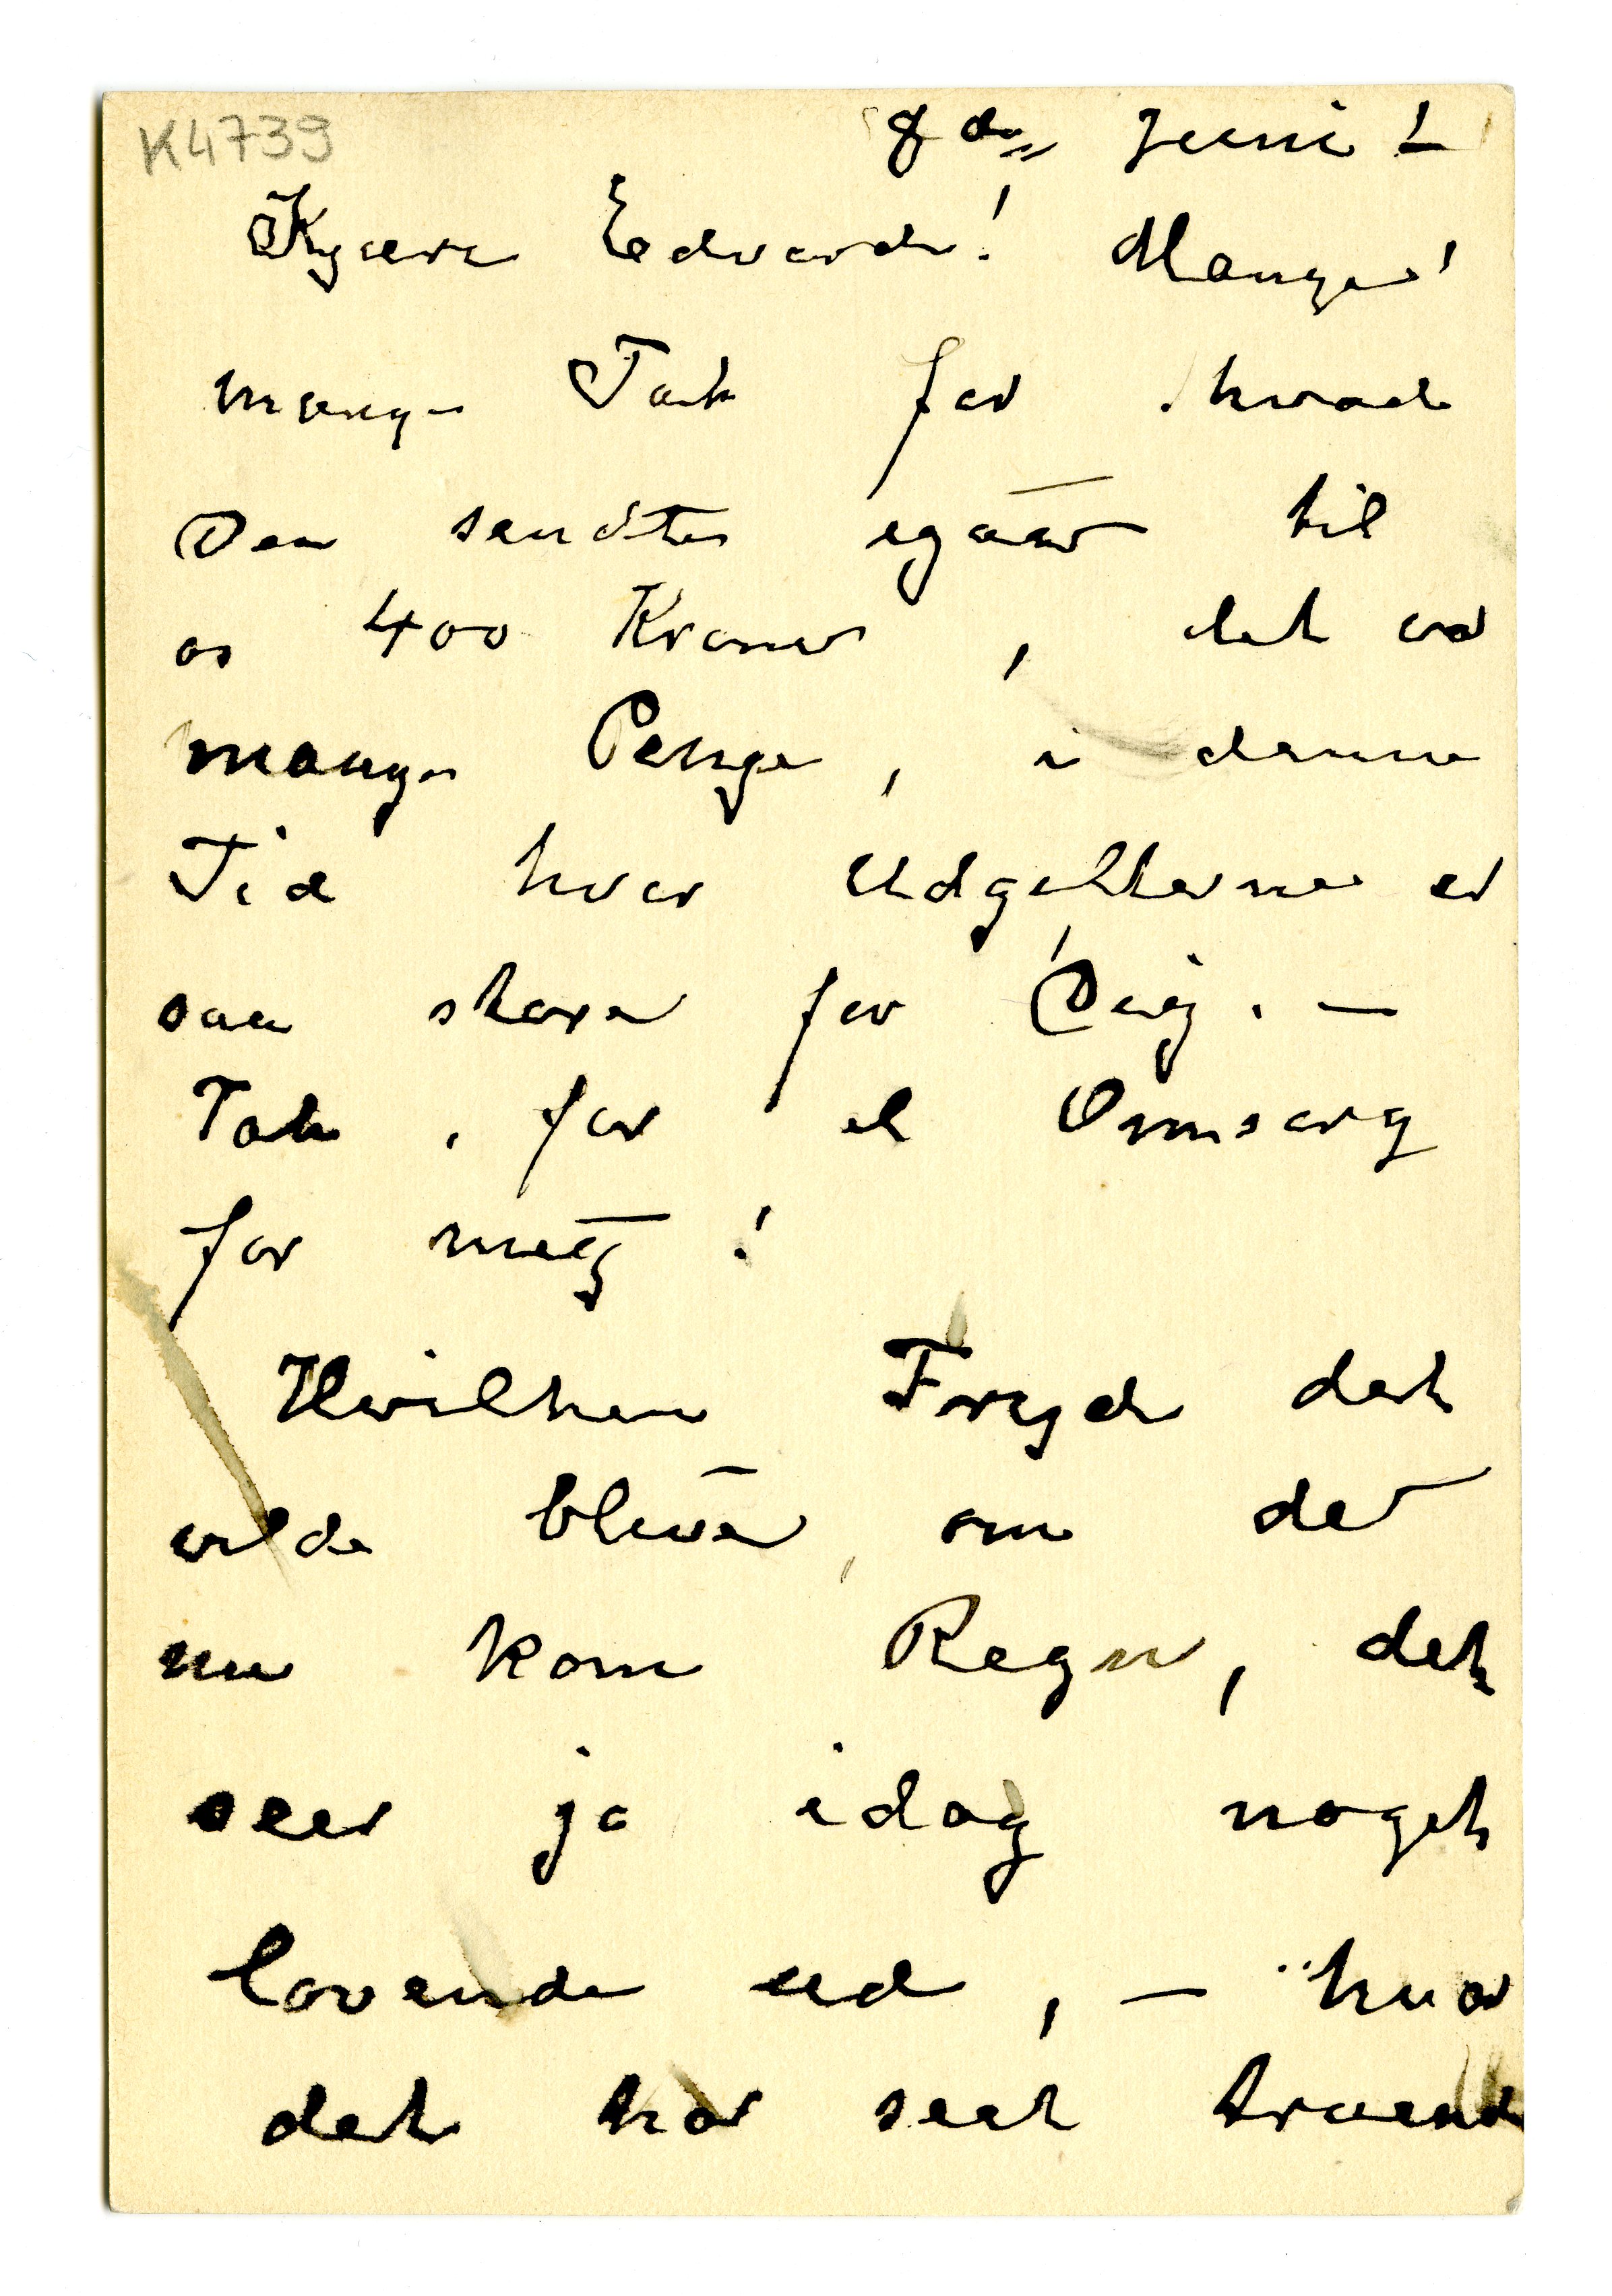 K4739
8de Juni !
Kjære Edvard! Mange!
mange Tak for hvad
Du sendte igaar til
os 400 Kroner, det var
mange Penge, i denne
Tid hvor Udgifterne er
saa store for Dig. —
Tak, for al Omsorg
for meg!
Hvilken Fryd det
vilde blive, om det
nu kom Regn, det
seer ja idag noget
lovende ud, — hvor
det har seet truende